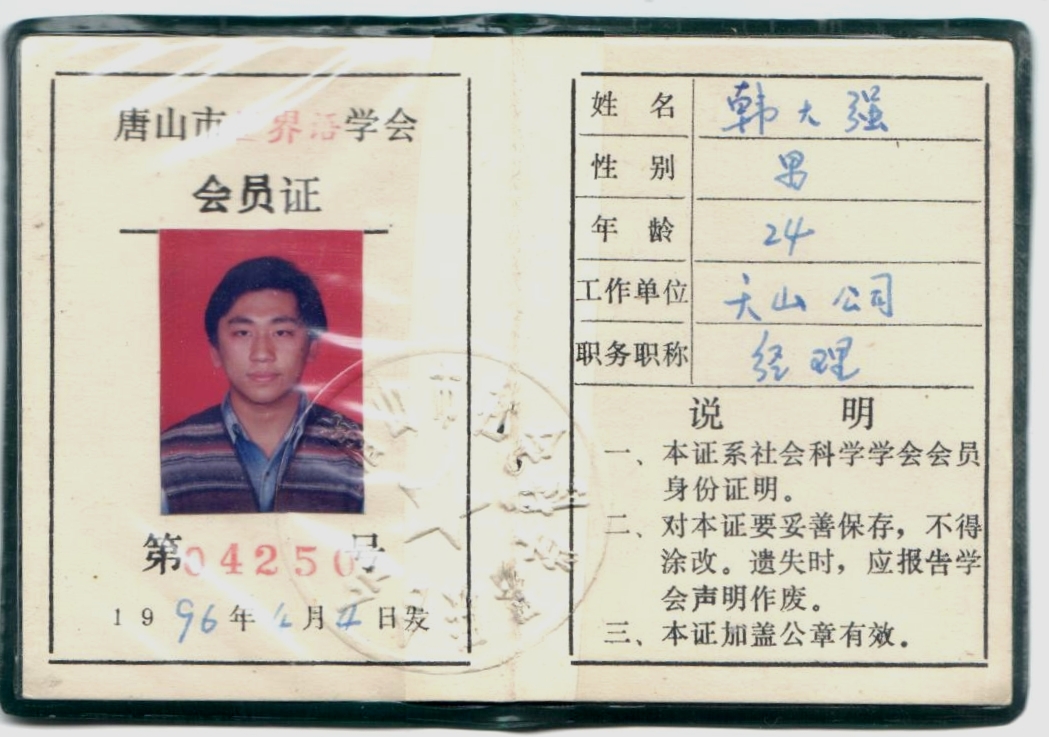 唐山市世界语学会
会员证
第04250号
1996年 月4日发
姓名 韩大强
性别 男
年龄 24
工作单位 天山公司
职务职称 经理
说明
一、本证系社会科学学会会员
身份证明。
二、对本证要妥善保存，不得
涂改。遗失时，应报告学
会声明作废。
三、本证加盖公章有效。